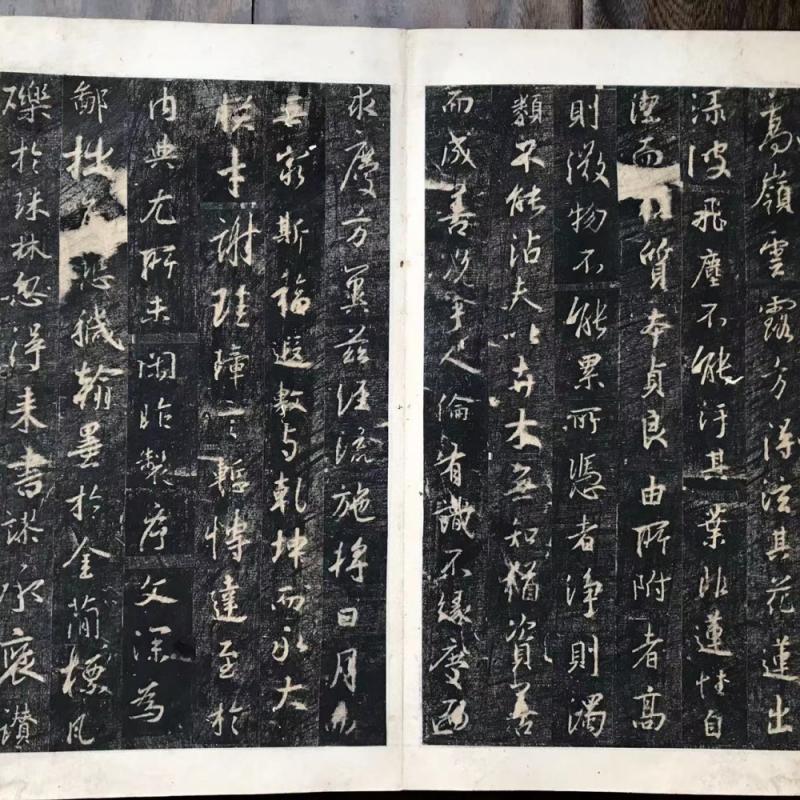 高嶺雲露方得泫其花蓮出
淥波飛塵不能汙其葉非蓮性自
潔而桂質本貞良由所附者高
則微物不能累所憑者淨則濁
類不能沾夫以卉木無知猶資善
而成善況乎人倫有識不緣慶而
求慶方冀茲經流施將日月而
無窮斯福遐敷与乾坤而永大
朕才謝珪璋言慙博達至於
内典尤所未閑昨製序文深為
鄙拙恐穢翰墨於金簡標瓦
礫於珠林忽得来書謬承褒讚